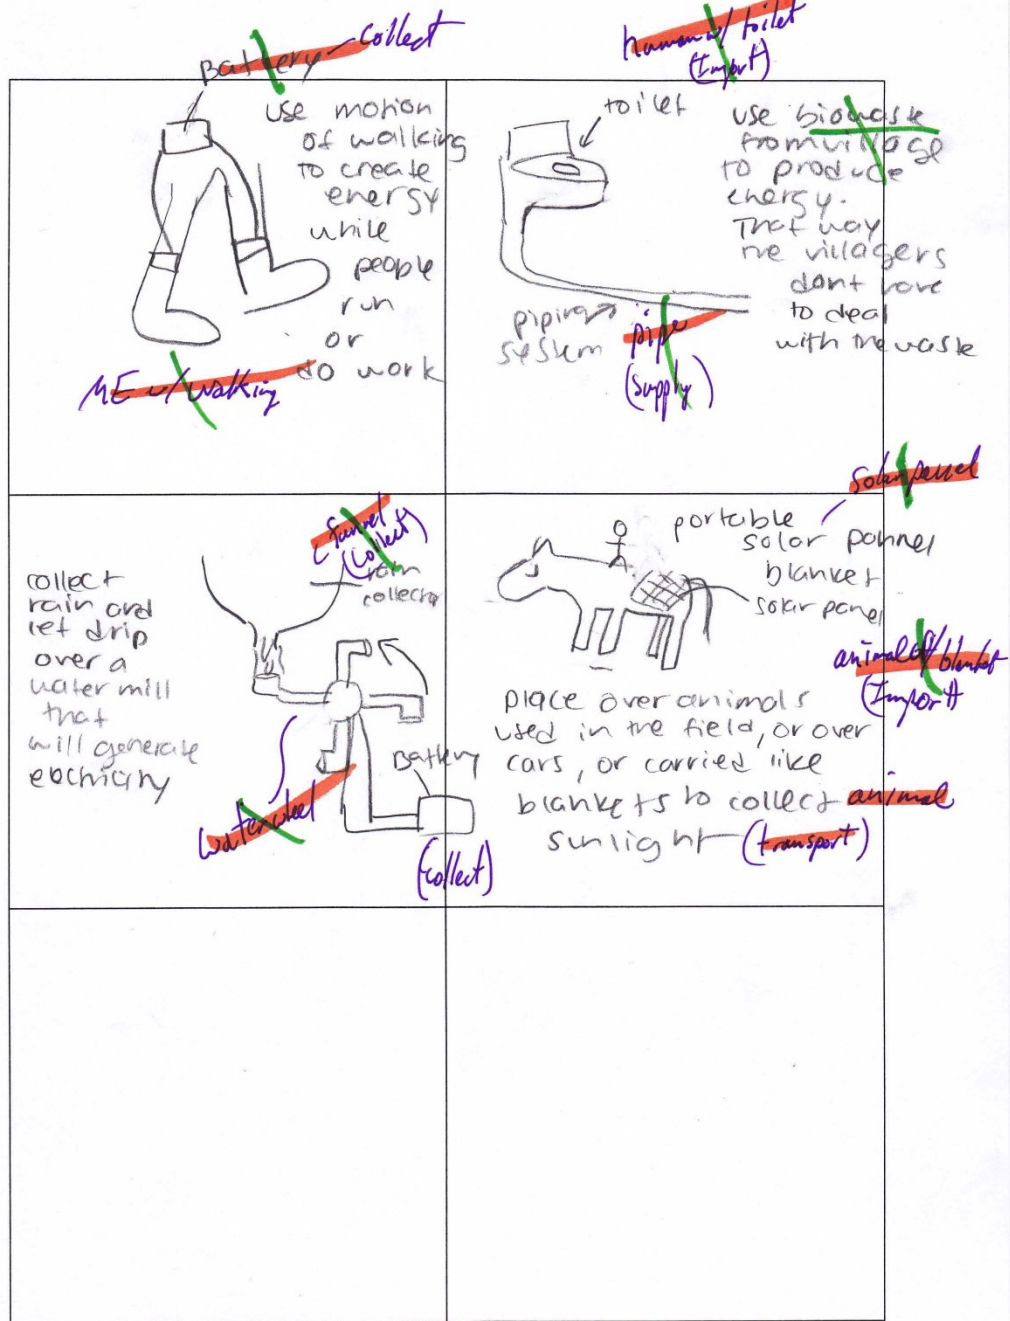 Battery – collect
use motion
of walking
to create
energy
while
people
run
or
do work
ME w/ walking
human w/ toilet
(Import)
toilet
use biowaste
from village
to produce
energy.
That way
the villagers
dont have
to deal
with the waste
piping
system
pipe
(supply)
funnel
(collect)
rain
collector
collect
rain and
let drip
over a
water mill
that
will generate
electricity
Battery
water wheel
(collect)
solar panel
portable
solar pannel
blanket
solar panel
animal w/ blanket
(Import)
place over animals
used in the field, or over
cars, or carried like
blankets to collect
sunlight
animal
(transport)